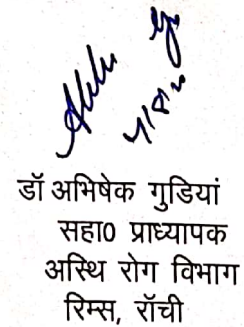 डॉ अभिषेक गुडियां
सहा0 प्राध्यापक
अस्थि रोग विभाग
रिम्स, रॉची